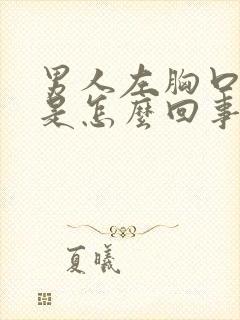 男人左胸口
是怎麼回事
夏曦